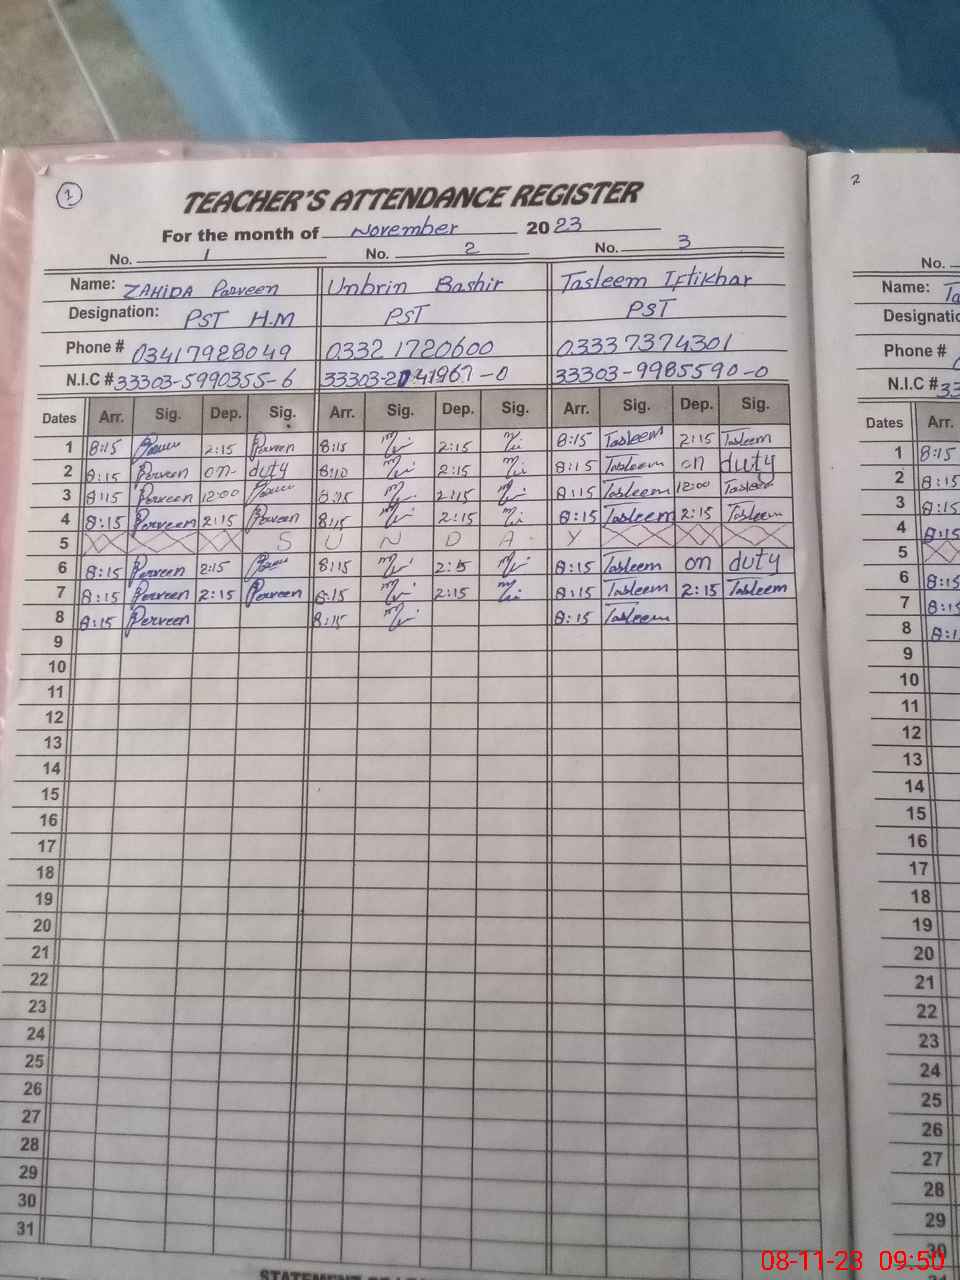 1
TEACHER'S ATTENDANCE REGISTER
For the month of November 2023
No. 1 No. 2 No. 3
Name: ZAHIDA Parveen Unbrin Bashir Tasleem Iftikhar
Designation: PST H.M PST PST
Phone # 03417928049 0332 1720600 03337374301
N.I.C # 33303-5990355-6 33303-2041967-0 33303-9985590-0
Dates Arr. Sig. Dep. Sig. Arr. Sig. Dep. Sig. Arr. Sig. Dep. Sig.
1 8:15 2:15 Parveen 8:15 2:15 8:15 Tasleem 2:15 Tasleem
2 8:15 Perveen on duty 8:10 2:15 8:15 Tasleem on duty
3 8:15 Perveen 12:00 8:15 2:15 8:15 Tasleem 12:00 Tasleem
4 8:15 Perveen 2:15 Parveen 8:15 2:15 8:15 Tasleem 2:15 Tasleem
5 S U N D A Y
6 8:15 Perveen 2:15 8:15 2:15 8:15 Tasleem on duty
7 8:15 Perveen 2:15 Perveen 8:15 2:15 8:15 Tasleem 2:15 Tasleem
8 8:15 Perveen 8:15 8:15 Tasleem
9
10
11
12
13
14
15
16
17
18
19
20
21
22
23
24
25
26
27
28
29
30
31
2
No.
Name:
Designatio
Phone #
N.I.C # 33
Dates Arr.
1 8:15
2 8:15
3 8:15
4 8:15
5
6 8:15
7 8:15
8 8:1
9
10
11
12
13
14
15
16
17
18
19
20
21
22
23
24
25
26
27
28
29
30
08-11-23 09:50